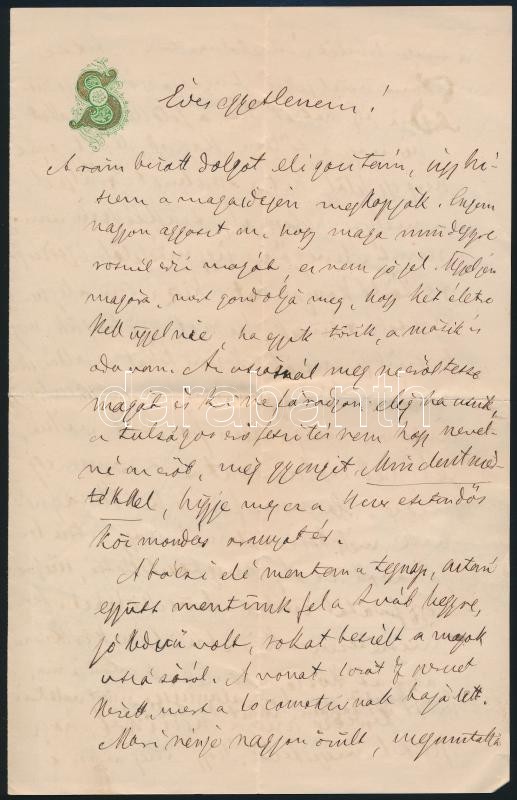 S
Édes egyetlenem!
A rám bízott dolgot eligazítám, úgy hi-
szem a maga idején megkapják. Engem
nagyon aggaszt az, hogy maga mindegyre
rosszul érzi magát, ez nem jó jel. Ügyeljen
magára, mert gondolja meg, hogy két életre
kell ügyelnie, ha egyik törik, a másik is
oda van. Az úszásnál meg ne erőltesse
magát és ki ne fáradjon elég ha úszik,
a túlságos erőfeszítés nem hogy nevel-
né az erőt, még gyengít. Mindent mér-
tékkel, higyje meg ez a esztendős
közmondás aranyat ér.
A bácsi elé mentem a tegnap, aztán
együtt mentünk fel a Sváb hegyre,
jó kedvű volt, sokat beszélt a maguk
úszásáról. A vonat órát perczet
késett, mert a locomotivnak baja lett.
Mari nénje nagyon örült, megmutatta
darabanth